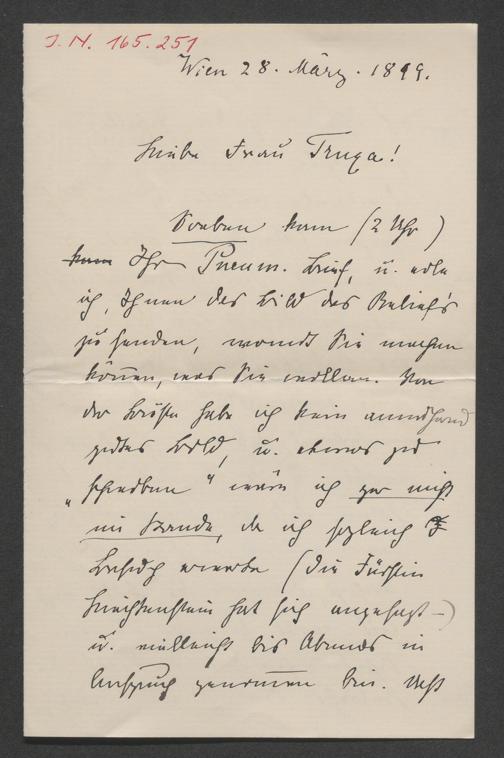 I. N. 165.251
Wien 28. März. 1899.
Liebe Frau Truxa!
Soeben kam (2 Uhr)
kam Ihr Pneum. Brief, u. eile
ich, Ihnen das Bild des Reliefs
zu senden, womit Sie machen
können, was Sie wollen. Von
der Büste habe ich kein
gutes Bild, u. etwas zu
„schreiben" wäre ich gar nicht
im Stande, da ich sogleich
Besuch erwarte (die Fürstin
Liechtenstein hat sich angesagt –)
u. vielleicht bis Abends in
Anspruch genommen bin.